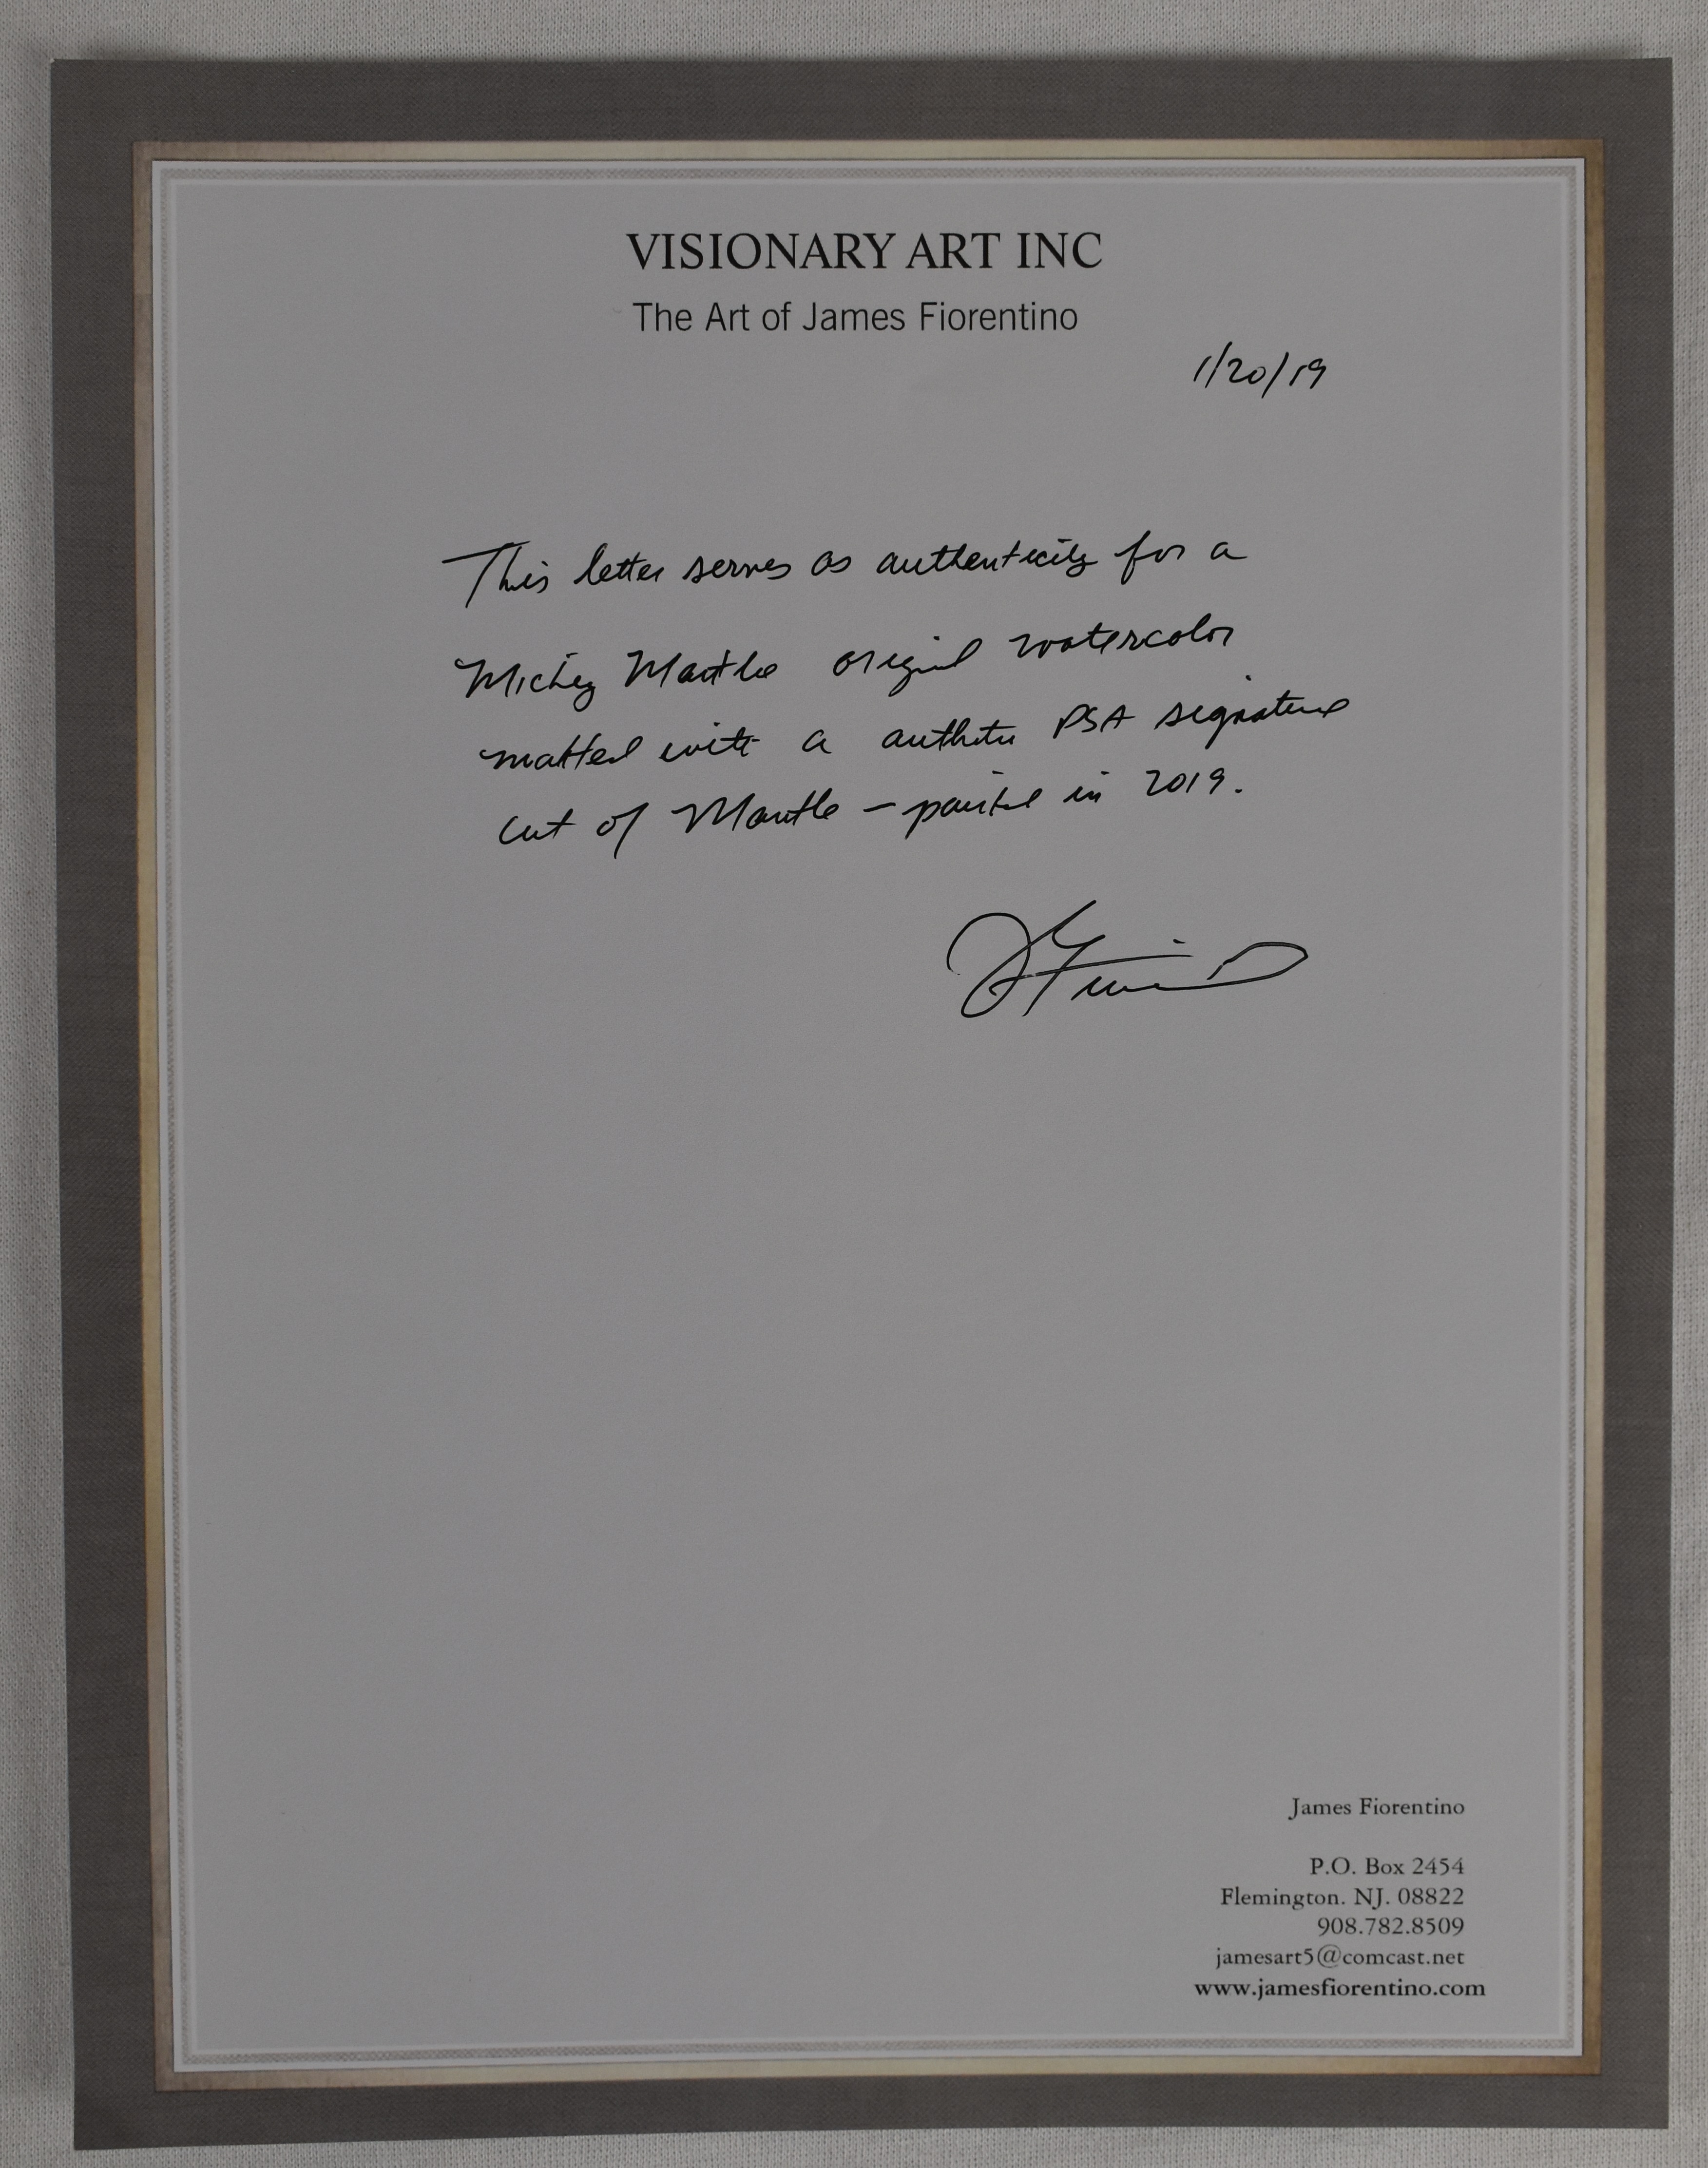 VISIONARY ART INC
The Art of James Fiorentino
1/20/19
This letter serves as authenticity for a
Mickey Mantle original watercolor
matted with a authentic PSA signature
cut of Mantle - painted in 2019.
James Fiorentino
P.O. Box 2454
Flemington. NJ. 08822
908.782.8509
jamesart5@comcast.net
www.jamesfiorentino.com